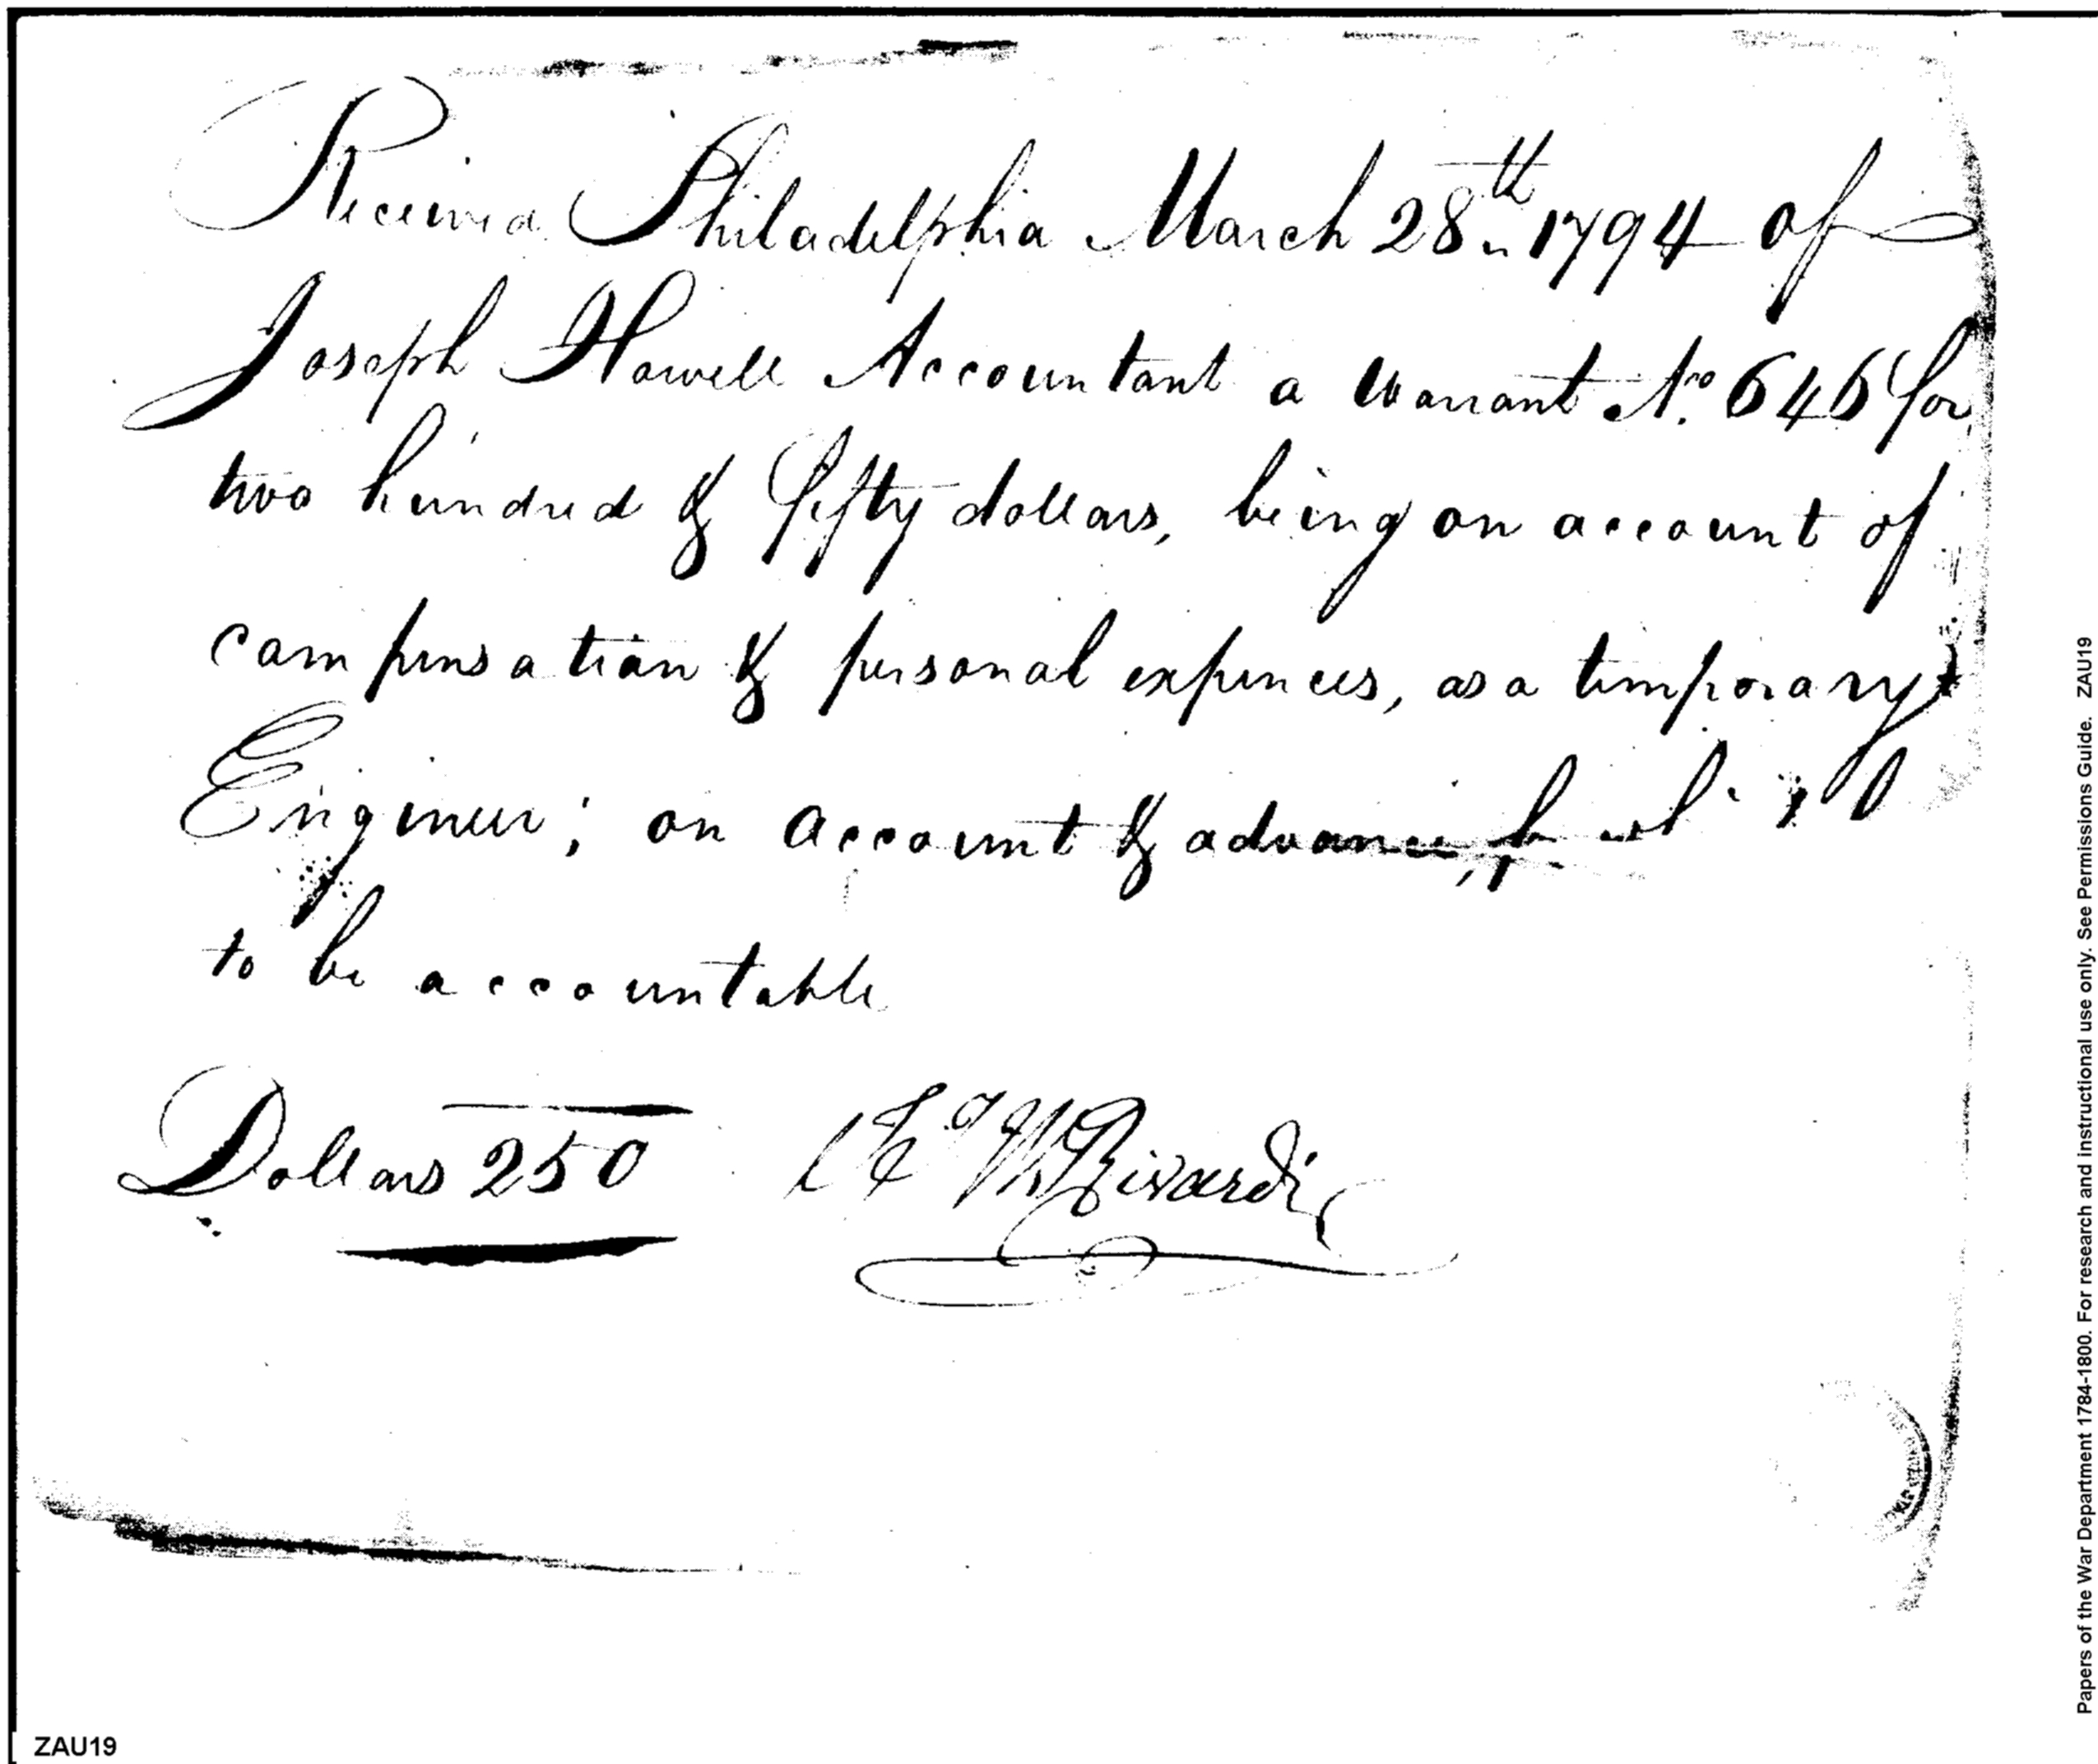 Received Philadelphia March 28th 1794 of
Joseph Howell Accountant a warrant No. 646 for
two hundred & fifty dollars, being on account of
compensation & personal expences, as a temporary
Engineer; on account & advance, for which
to be accountable
Dollars 250
Rivardi
ZAU19
Papers of the War Department 1784-1800. For research and instructional use only. See Permissions Guide. ZAU19